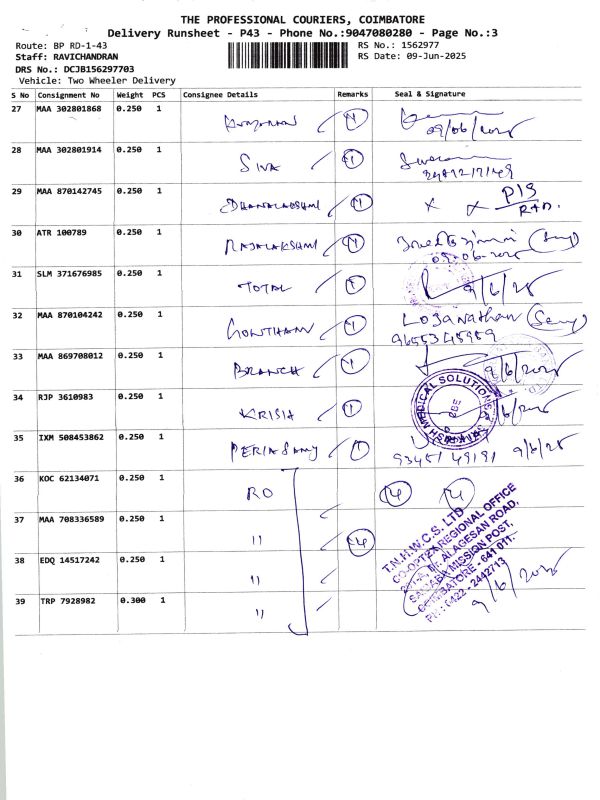 THE PROFESSIONAL COURIERS, COIMBATORE
Delivery Runsheet - P43 - Phone No.:9047080280 - Page No.:3
Route: BP RD-1-43 RS No.: 1562977
Staff: RAVICHANDRAN RS Date: 09-Jun-2025
DRS No.: DCJB156297703
Vehicle: Two Wheeler Delivery
S No Consignment No Weight PCS Consignee Details Remarks Seal & Signature
27 MAA 302801868 0.250 1 1
09/06/2025
28 MAA 302801914 0.250 1 SIVA 1
29 MAA 870142745 0.250 1 DHANALAKSHMI 1 P13
30 ATR 100789 0.250 1 RAJALAKSHMI 1
09-06-2025
31 SLM 371676985 0.250 1 TOTAL 1 9/6/25
32 MAA 870104242 0.250 1 GOWTHAM 1 Loganathan
9655345959
33 MAA 869708012 0.250 1 BRANCH 1 9/6/2025
34 RJP 3610983 0.250 1 KRISH 1 MEDICAL SOLUTIONS 9/6/2025
35 IXM 508453862 0.250 1 PERIASAMY 1 9345149191 9/6/25
36 KOC 62134071 0.250 1 RO 4 4
37 MAA 708336589 0.250 1 " 4
38 EDQ 14517242 0.250 1 "
39 TRP 7928982 0.300 1 "
T.N.H.W.C.S. LTD
CO-OPTEX REGIONAL OFFICE
ALAGESAN ROAD,
SAIBABA MISSION POST,
COIMBATORE - 641 011.
PH: 0422 - 2442713
9/6/2025